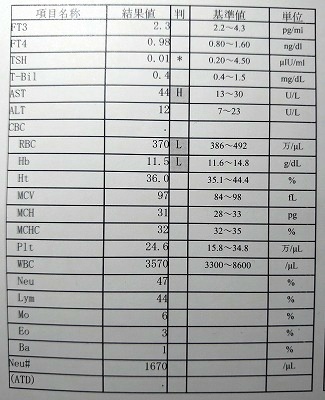 項目名称 結果値 判 基準値 単位
FT3 2.3 2.2～4.3 pg/ml
FT4 0.98 0.80～1.60 ng/dl
TSH 0.01 * 0.20～4.50 μIU/ml
T-Bil 0.4 0.4～1.5 mg/dL
AST 44 H 13～30 U/L
ALT 12 7～23 U/L
CBC .
RBC 370 L 386～492 万/μL
Hb 11.5 L 11.6～14.8 g/dL
Ht 36.0 35.1～44.4 %
MCV 97 84～98 fL
MCH 31 28～33 pg
MCHC 32 32～35 %
Plt 24.6 15.8～34.8 万/μL
WBC 3570 3300～8600 /μL
Neu 47 %
Lym 44 %
Mo 6 %
Eo 3 %
Ba 1 %
Neu# 1670 /μL
(ATD) .